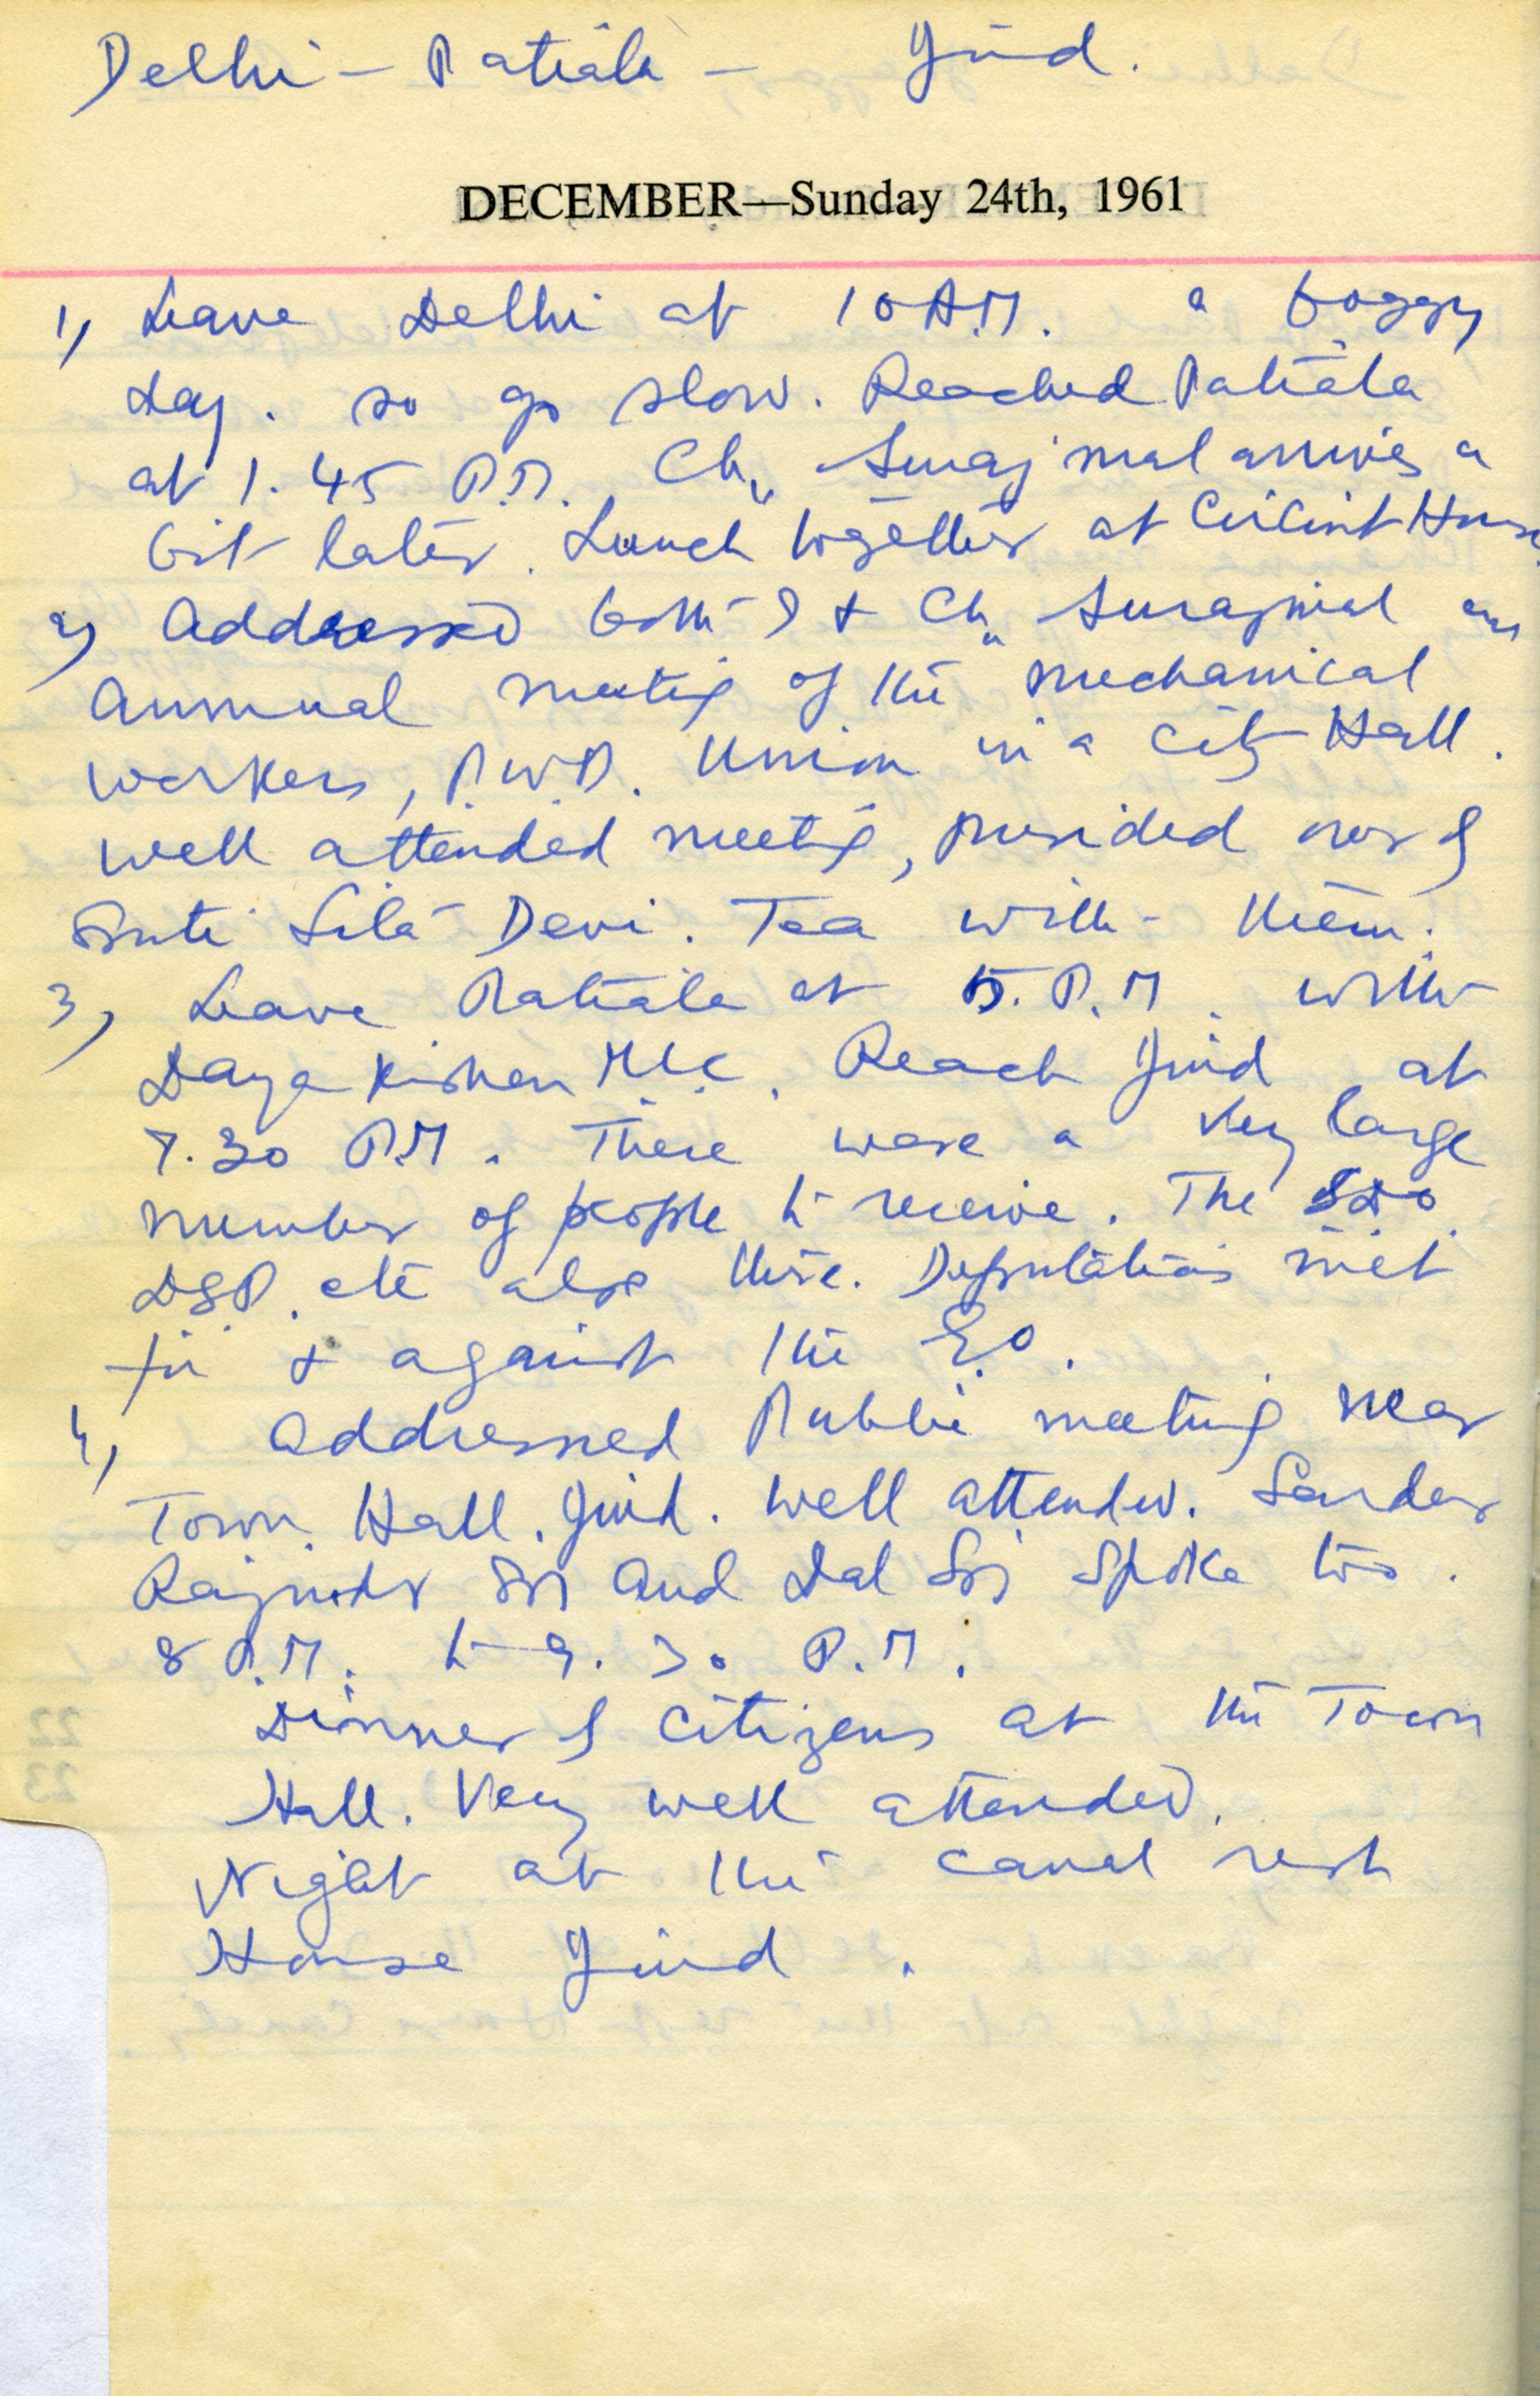 Delhi - Patiala - Jind.
DECEMBER—Sunday 24th, 1961
1) Leave Delhi at 10 A.M. a foggy
day. so go slow. Reached Patiala
at 1.45 P.M. Ch. Suraj mal arrives a
bit later. Lunch together at Circuit House.
2) Addressed both I & Ch. Surajmal an
Annual meeting of the mechanical
workers, P.W.D. Union in a City Hall.
well attended meeting, presided over by
Smti Sila Devi. Tea with them.
3) Leave Patiala at 5. P.M. with
Daya Kishen M.L.C. Reach Jind at
7.30 P.M. There were a very large
number of people to receive. The SDO
DSP. etc also there. Deputations met
for & against the E.O.
4) Addressed Public meeting near
Town Hall. Jind. well attended. Sardar
Rajinder and Dal Spoke too.
8 P.M. to 9.30 P.M.
Dinner by citizens at the Town
Hall. Very well attended.
Night at the canal rest
House Jind.
22
23